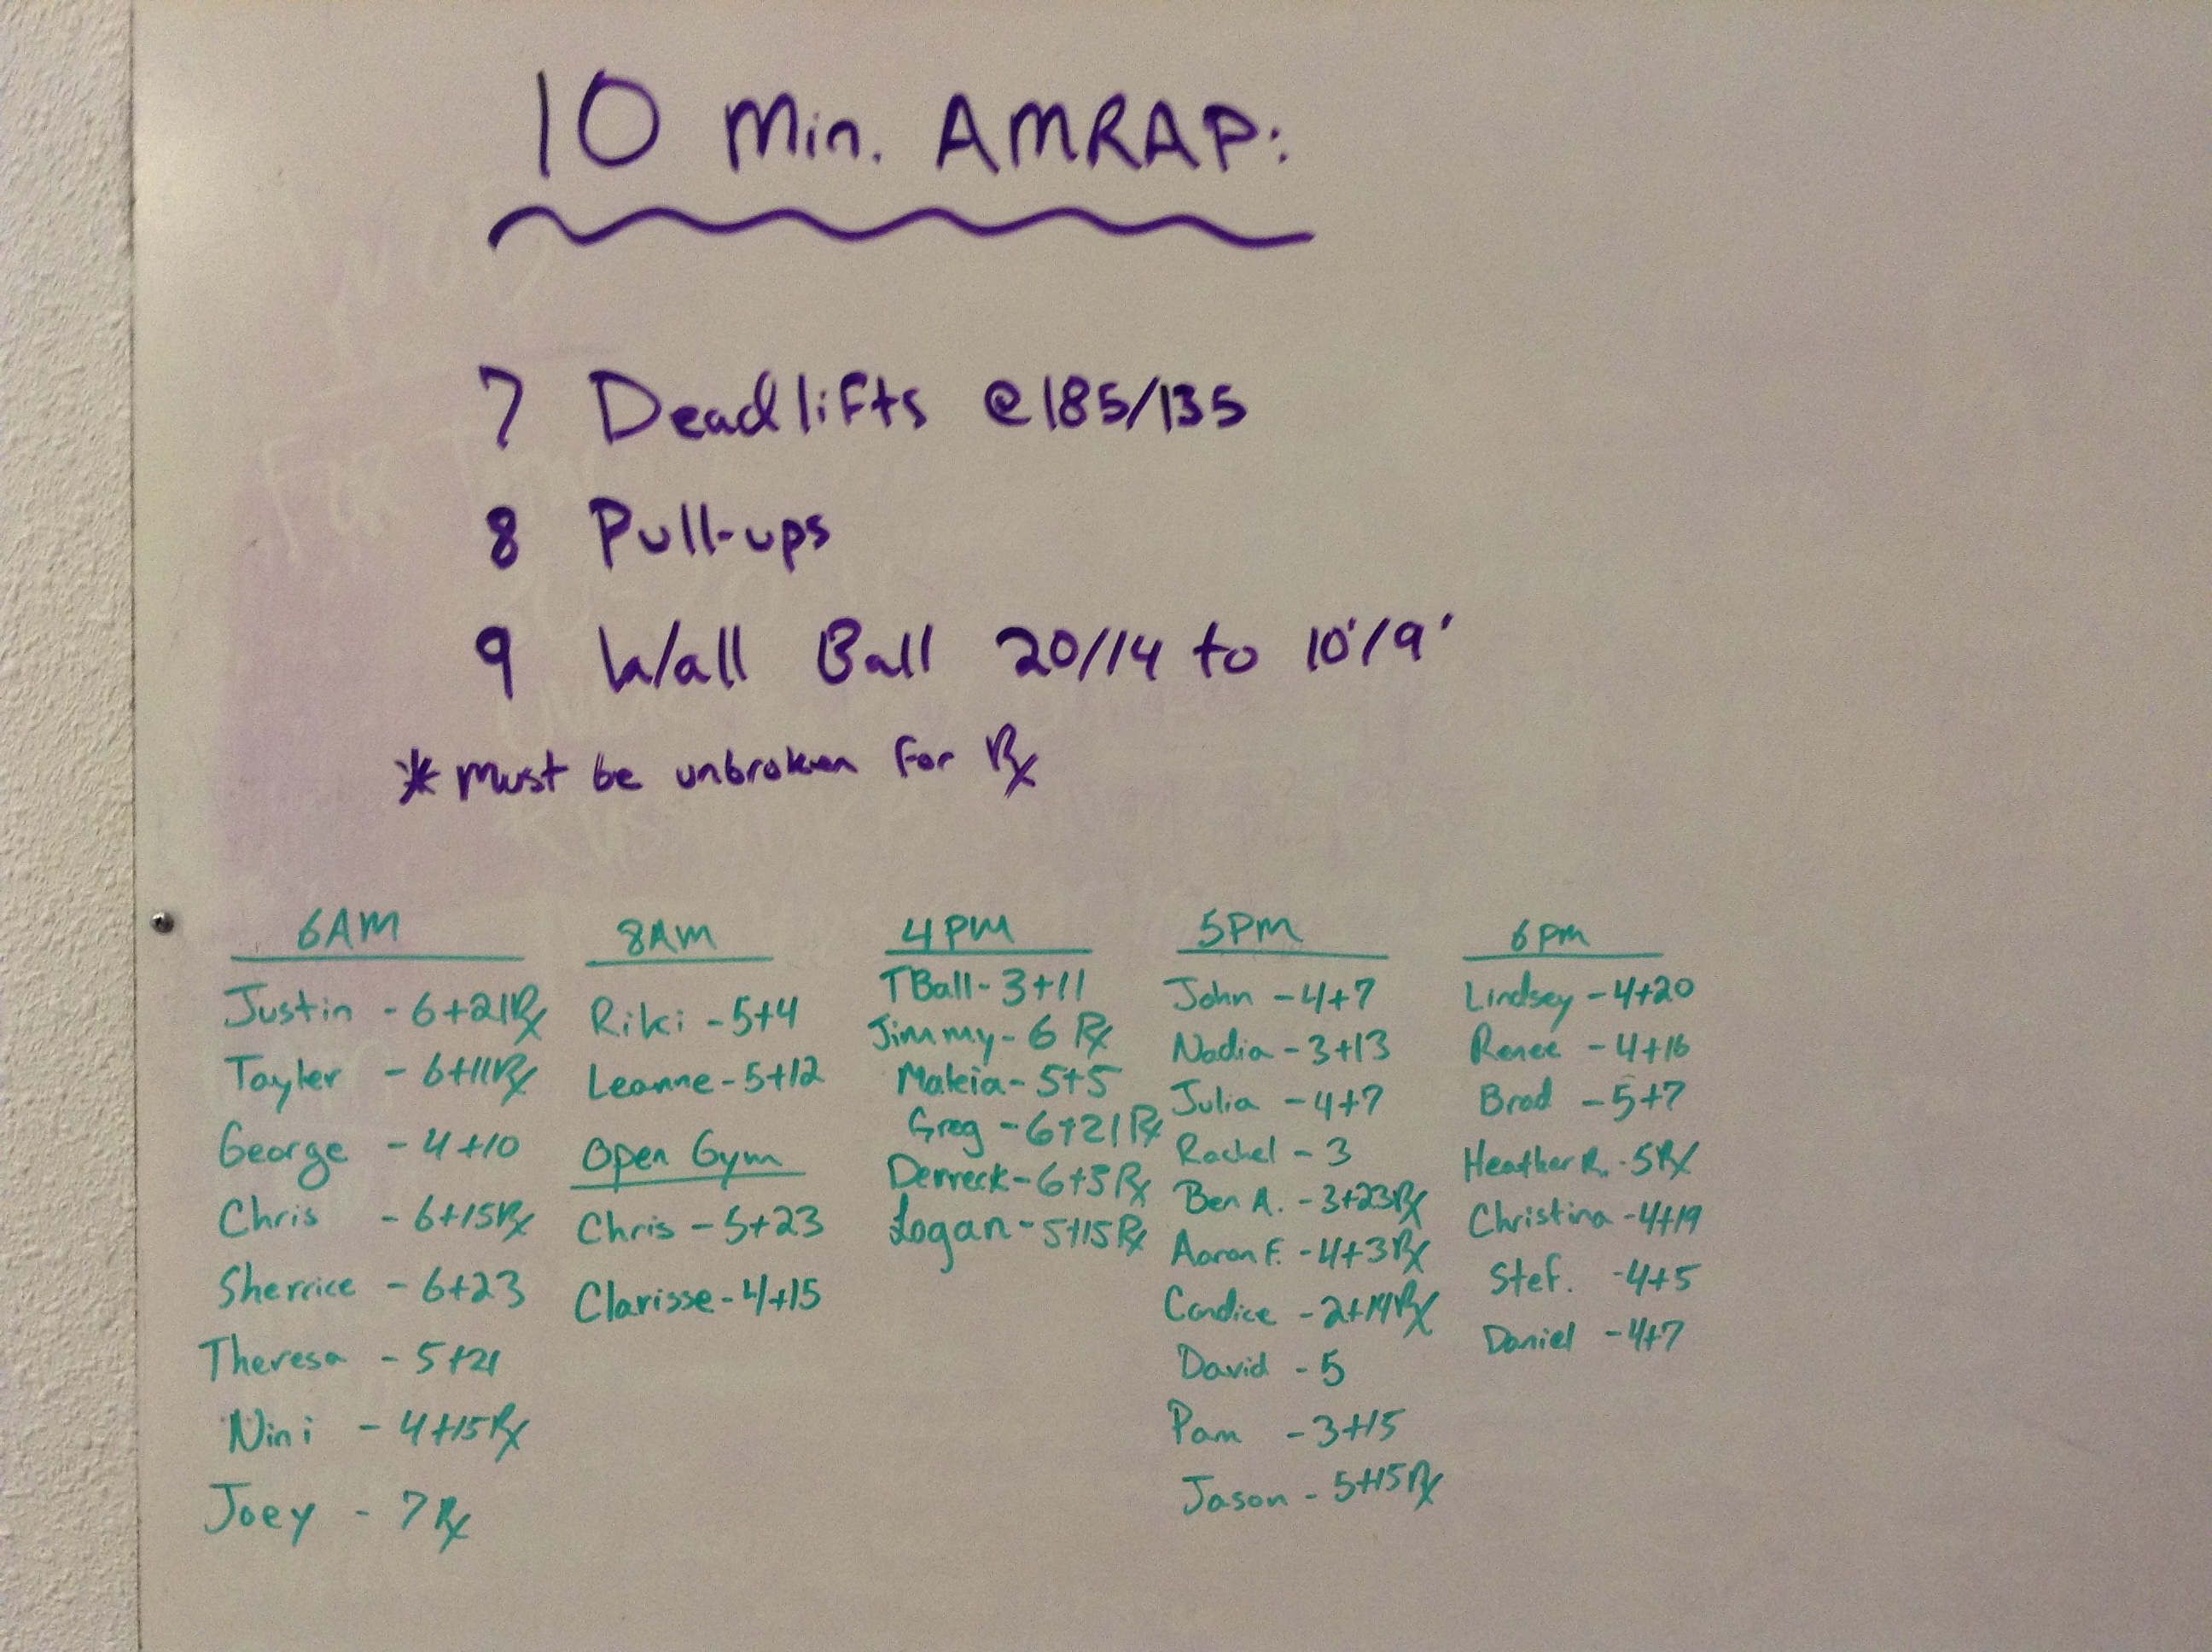 10 Min. AMRAP:
7 Deadlifts @ 185/135
8 Pull-ups
9 Wall Ball 20/14 to 10'/9'
* Must be unbroken for Rx
6AM
Justin - 6+21Rx
Tayler - 6+11Rx
George - 4+10
Chris - 6+15Rx
Sherrice - 6+23
Theresa - 5+21
Nini - 4+15Rx
Joey - 7Rx
8AM
Riki - 5+4
Leanne - 5+12
Open Gym
Chris - 5+23
Clarisse - 4+15
4PM
TBall - 3+11
Jimmy - 6 Rx
Makia - 5+5
Greg - 6+21Rx
Derreck - 6+5Rx
Logan - 5+15Rx
5PM
John - 4+7
Nadia - 3+13
Julia - 4+7
Rachel - 3
Ben A. - 3+23Rx
Aaron F. - 4+3Rx
Candice - 2+14Rx
David - 5
Pam - 3+15
Jason - 5+15Rx
6PM
Lindsey - 4+20
Renee - 4+16
Brad - 5+7
Heather R. - 5Rx
Christina - 4+19
Stef. - 4+5
Daniel - 4+7